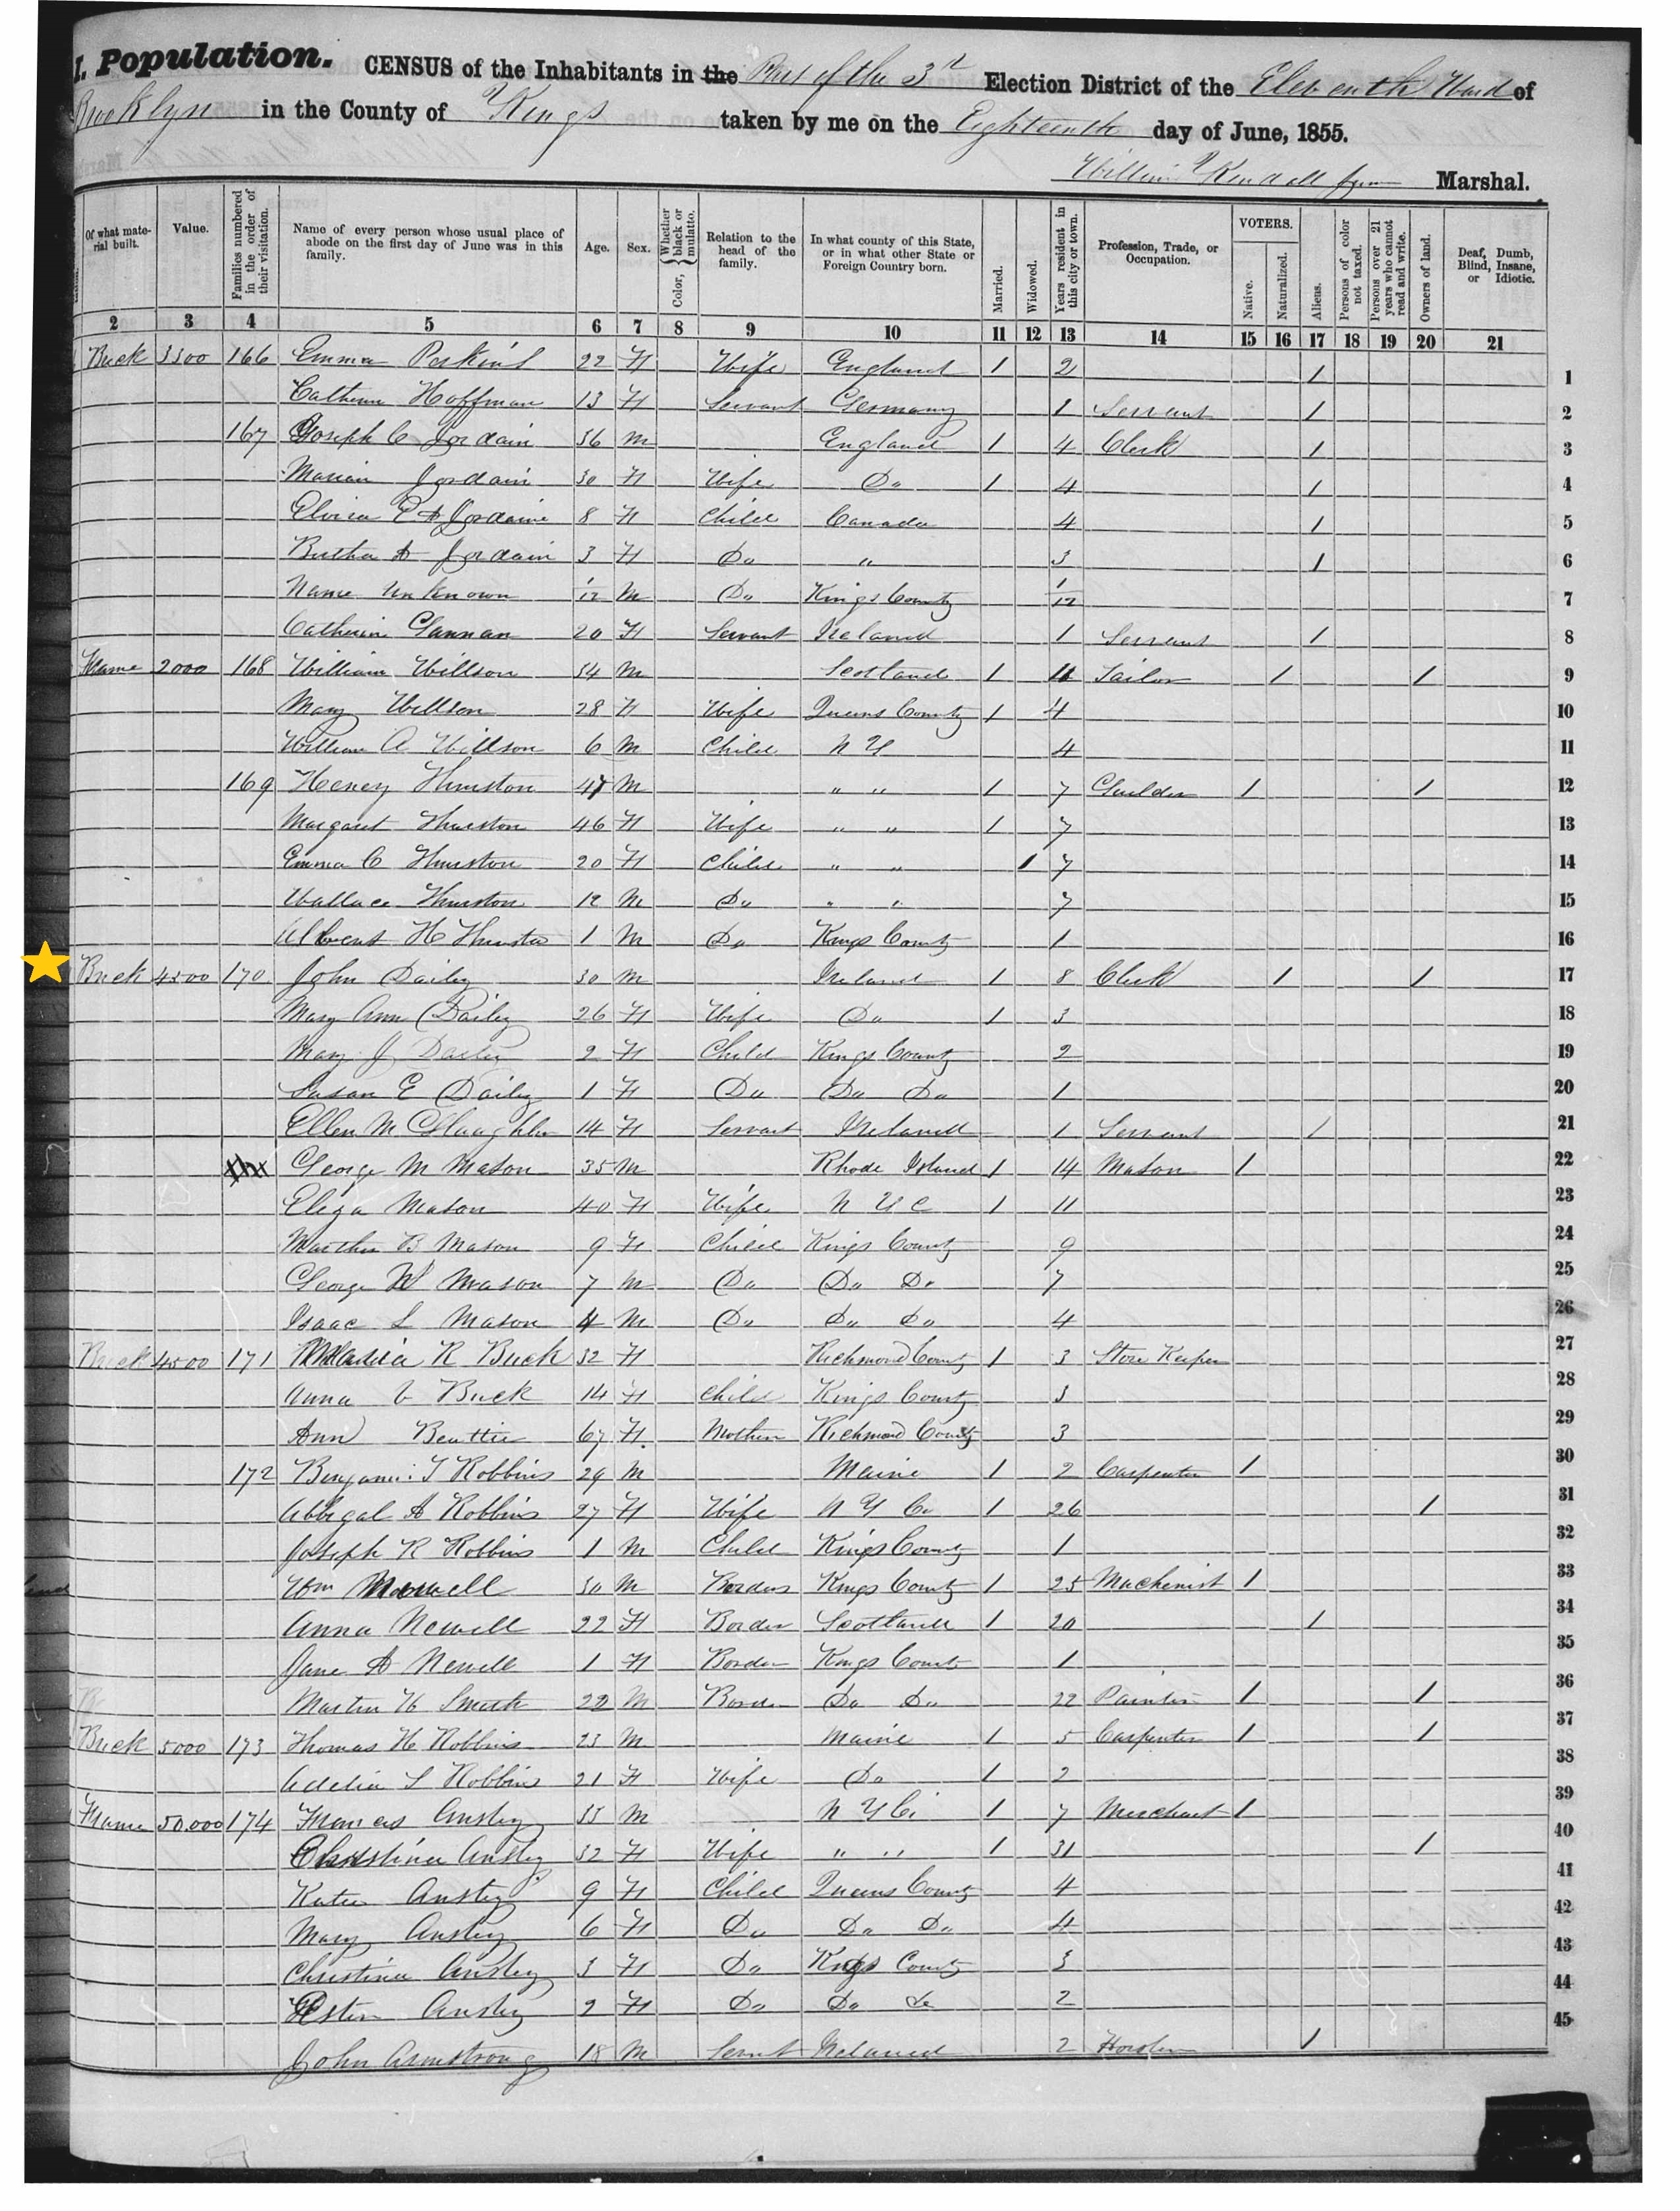 I. Population. CENSUS of the Inhabitants in the Part of the 3rd Election District of the Eleventh Ward of
Brooklyn in the County of Kings taken by me on the Eighteenth day of June, 1855.
William Kendall Marshal.
Of what material built. Value. Families numbered in the order of their visitation. Name of every person whose usual place of abode on the first day of June was in this family. Age. Sex. Color, { Whether black or mulatto. Relation to the head of the family. In what county of this State, or in what other State or Foreign Country born. Married. Widowed. Years resident in this city or town. Profession, Trade, or Occupation. VOTERS. Native. Naturalized. Aliens. Persons of color not taxed. Persons over 21 years who cannot read and write. Owners of land. Deaf, Dumb, Blind, Insane, or Idiotic.
2 3 4 5 6 7 8 9 10 11 12 13 14 15 16 17 18 19 20 21
Brick 3500 166 Emma Perkins 22 F Wife England 1 2 1 1
Catherine Hoffman 13 F Servant Germany 1 Servant 1 2
167 Joseph C Jordain 36 M England 1 4 Clerk 1 3
Marian Jordain 30 F Wife Do 1 4 1 4
Jordaine 8 F Child Canada 4 1 5
Bertha A Jordain 3 F Do " 3 1 6
Name Unknown 1/12 M Do Kings County 1/12 7
Catherin Gannan 20 F Servant Ireland 1 Servant 1 8
Frame 2000 168 William Willson 54 M Scotland 1 11 Tailor 1 1 9
Mary Willson 28 F Wife Queens County 1 4 10
William A Willson 6 M Child N Y 4 11
169 Henry Thurston 47 M " " 1 7 1 1 12
Margaret Thurston 46 F Wife " " 1 7 13
Emma C Thurston 20 F Child " " 1 7 14
Wallace Thurston 12 M Do " " 7 15
H Thurston 1 M Do Kings County 1 16
Brick 4500 170 John Dailey 30 M Ireland 1 8 Clerk 1 1 17
Mary Ann Dailey 26 F Wife Do 1 3 18
Mary J Dailey 2 F Child Kings County 2 19
Susan E Dailey 1 F Do Do Do 1 20
Ellen McGlaughlin 14 F Servant Ireland 1 Servant 1 21
George M Mason 35 M Rhode Island 1 14 Mason 1 22
Eliza Mason 40 F Wife N Y C 1 11 23
Martha B Mason 9 F Child Kings County 9 24
George W Mason 7 M Do Do Do 7 25
Isaac L Mason 4 M Do Do Do 4 26
Brick 4500 171 R Buck 32 F Richmond County 1 3 Store Keeper 27
Anna Buck 14 F Child Kings County 3 28
Ann Beattie 67 F Mother Richmond County 3 29
172 Benjami: T Robbins 29 M Maine 1 2 Carpenter 1 30
Abbigal A Robbins 27 F Wife N Y Co 1 26 1 31
Joseph R Robbins 1 M Child Kings County 1 32
Wm Newell 30 M Border Kings County 1 25 Machenist 1 33
Anna Newell 22 F Border Scotland 1 20 1 34
Jane A Newell 1 F Border Kings County 1 35
Martin H Smith 22 M Border Do Do 22 Painter 1 1 36
Brick 5000 173 Thomas H Robbins 23 M Maine 1 5 Carpenter 1 1 37
Adelia S Robbins 21 F Wife Do 1 2 38
Frame 50.000 174 Frances Anstey 33 M N Y Ci 1 7 Merchant 1 39
Christina Anstey 32 F Wife " " 1 31 1 40
Katie Anstey 9 F Child Queens County 4 41
Mary Anstey 6 F Do Do Do 4 42
Christina Anstey 3 F Do Kings County 3 43
Anstey 2 F Do Do Do 2 44
John Armstrong 18 M Servt Ireland 2 Hostler 1 45